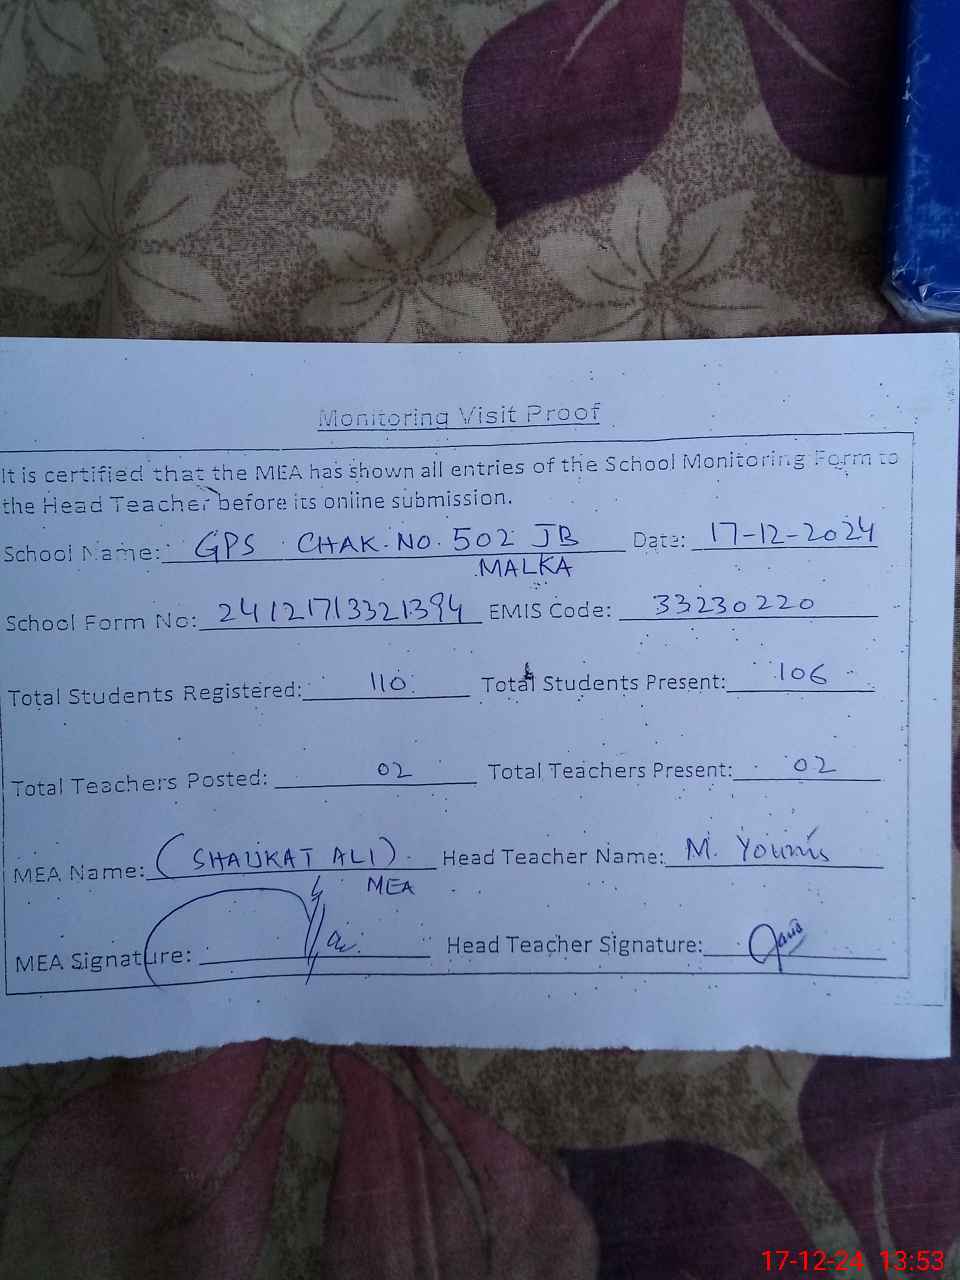 Monitoring Visit Proof
It is certified that the MEA has shown all entries of the School Monitoring Form to
the Head Teacher before its online submission.
School Name: GPS CHAK. NO. 502 JB Date: 17-12-2024
MALKA
School Form No: 24121713321394 EMIS Code: 33230220
Total Students Registered: 110 Total Students Present: 106
Total Teachers Posted: 02 Total Teachers Present: 02
MEA Name: (SHAUKAT ALI) Head Teacher Name: M. Younis
MEA
MEA Signature: Head Teacher Signature:
17-12-24 13:53